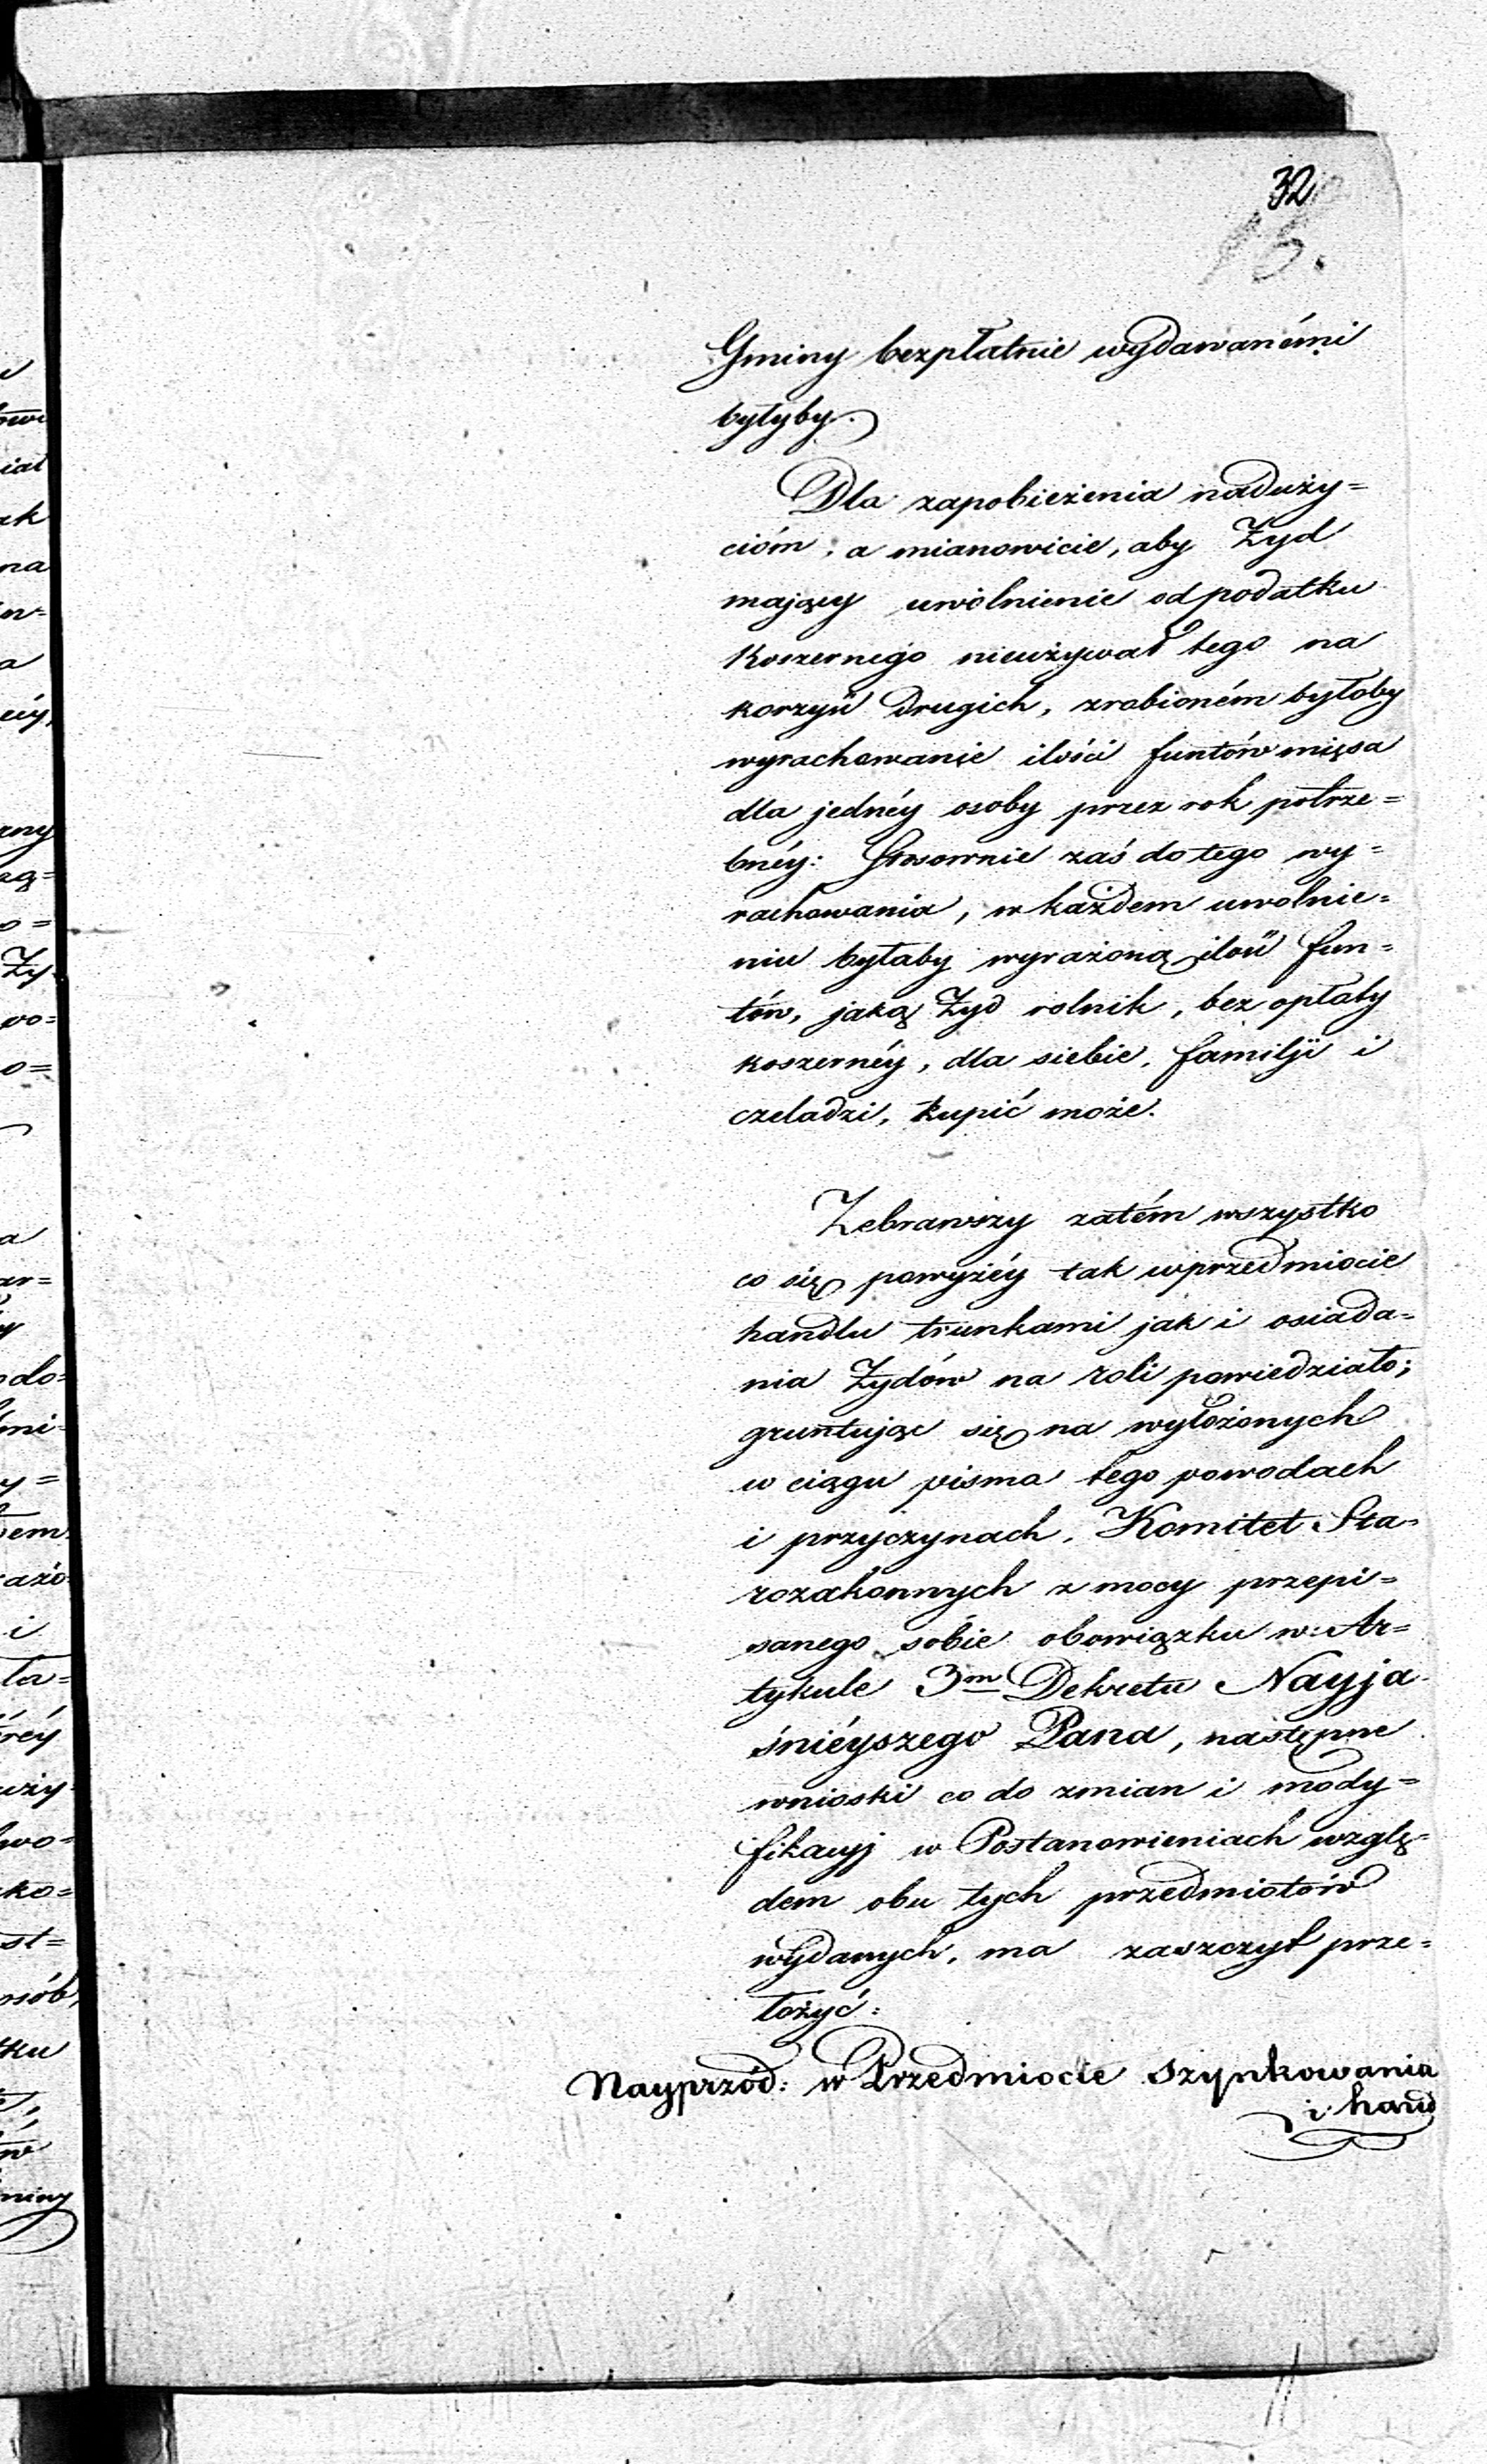 32
Gminy bezpłatnie wydawanémi
byłyby.
Dla zapobieżenia naduży=
cióm, a mianowicie, aby Żyd
mający uwólnienie od podatku
Koszernego nieużywał tego na
korzyść drugich, zrobioném byłoby
wyrachowanie ilości funtów mięsa
dla jednéy osoby przez rok potrze=
bnéy: Stosownie zaś do tego wy=
rachowania, w każdem uwolnie=
niu byłaby wyrażoną ilość fun=
tów, jaką Żyd rolnik, bez opłaty
koszernéy, dla siebie, familji i
czeladzi, kupić może.
Zebrawszy zatém wszystko
co się powyżéy tak w przedmiocie
handlu trunkami jak i osiada=
nia Żydów na roli powiedziało;
gruntując się na wyłożonych
w ciągu pisma tego powodach
i przyczynach, Komitet Sta=
rozakonnych z mocy przepi=
sanego sobie obowiązku w Ar=
tykule 3m Dekretu Nayja
śniéyszego Pana, następne
wnioski co do zmian i mody=
fikacyj w Postanowieniach wzglę=
dem obu tych przedmiotów
wydanych, ma zaszczyt prze=
łożyć:
Nayprzód: w Przedmiocie szynkowania
i hand